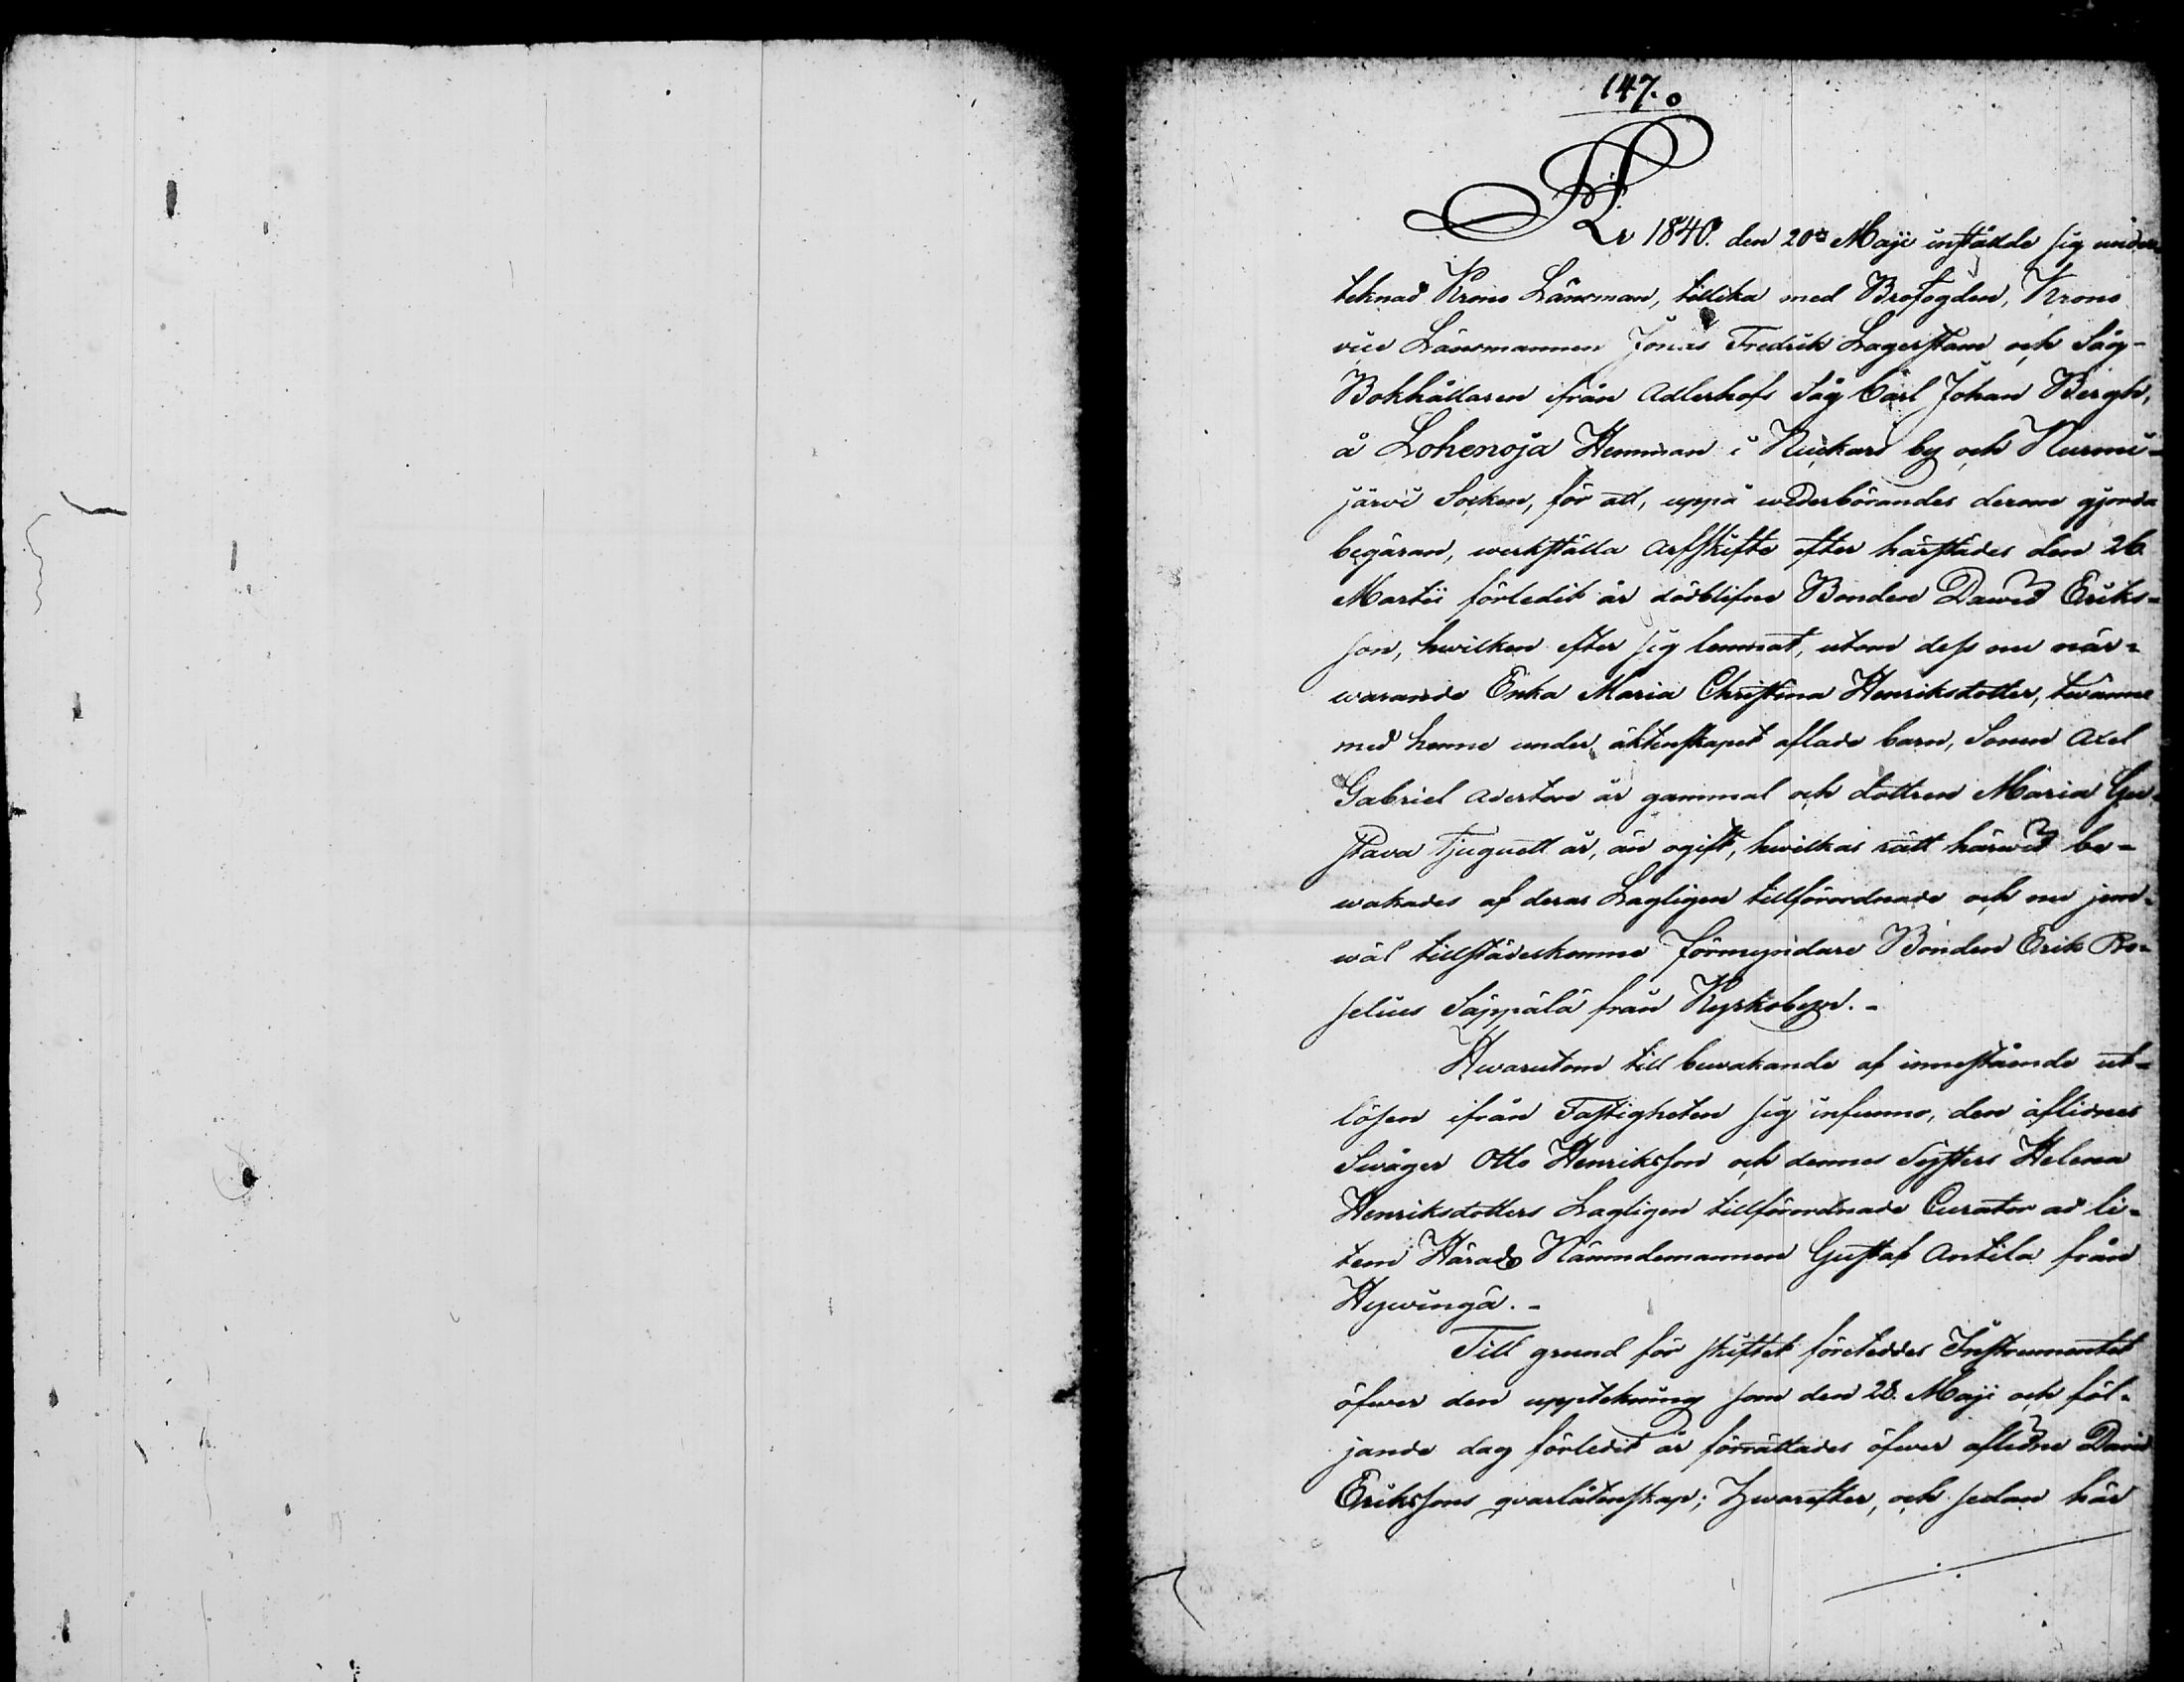 147.
År 1840. den 20de Maji instälde sig under-
teknad Krono Länsman, tillika med Brofogden, Krono
vice Länsmannen Jonas Fredrik Lagerstam och Såg-
Bokhållaren ifrån Adlerhofs Såg Carl Johan Bergh,
å Lohenoja Hemman i Nuckari by och Nurmi-
järvi Socken, för att, uppå wederbörandes derom gjorda
begäran, werkställa arfskifte efter härstädes den 26.
Martii förledit år dödblifne Bonden Dawid Eriks-
son, hwilken efter sig lemnat, utom dess nu när-
warande Enka Maria Christina Henriksdotter, twänne
med henne under äktenskapet aflade barn, Sonen Axel
Gabriel Aderton år gammal och dottren Maria Gu-
stava Tjuguett år, än ogift, hwilkas rätt härwid be-
wakades af deras Lagligen tillförordnade och nu jem-
wäl tillstädeskomne Förmyndare Bonden Erik Ro-
selius Säppälä från Kyrkobyn.-
Hwarutom till bewakande af innestående ut-
lösen ifrån Fastigheten sig infunno, den aflidnes
Swåger Otto Henriksson och dennes Systers Helena
Henriksdotters Lagligen tillförordnade Curator ad li-
tem Härads Nämndemannen Gustaf Antila från
Hywingä.-
Till grund för skiftet företeddes Instrumentet
öfwer den uppteckning som den 28. Maji och föl-
jande dag förledit år förrättades öfwer aflidne David
Erikssons qvarlåtenskap; Hwarefter, och sedan här